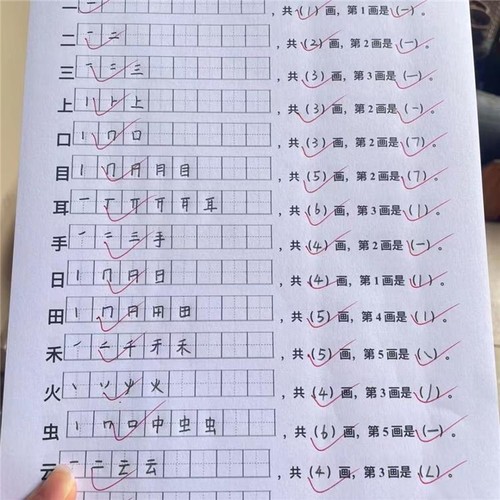 一 一 ，共（1）画，第1画是（一）。
二 一 二 ，共（2）画，第2画是（一）。
三 一 二 三 ，共（3）画，第3画是（一）。
上 丨 ⺊ 上 ，共（3）画，第2画是（一）。
口 丨 冂 口 ，共（3）画，第2画是（㇕）。
目 丨 冂 月 月 目 ，共（5）画，第2画是（㇕）。
耳 一 丅 丌 耳 耳 耳 ，共（6）画，第3画是（丨）。
手 一 二 三 手 ，共（4）画，第2画是（一）。
日 丨 冂 日 日 ，共（4）画，第1画是（丨）。
田 丨 冂 日 用 田 ，共（5）画，第4画是（丨）。
禾 一 二 千 禾 禾 ，共（5）画，第5画是（㇏）。
火 丶 丷 火 火 ，共（4）画，第3画是（丿）。
虫 丨 冂 口 中 虫 虫 ，共（6）画，第5画是（一）。
云 一 二 云 云 ，共（4）画，第3画是（㇜）。